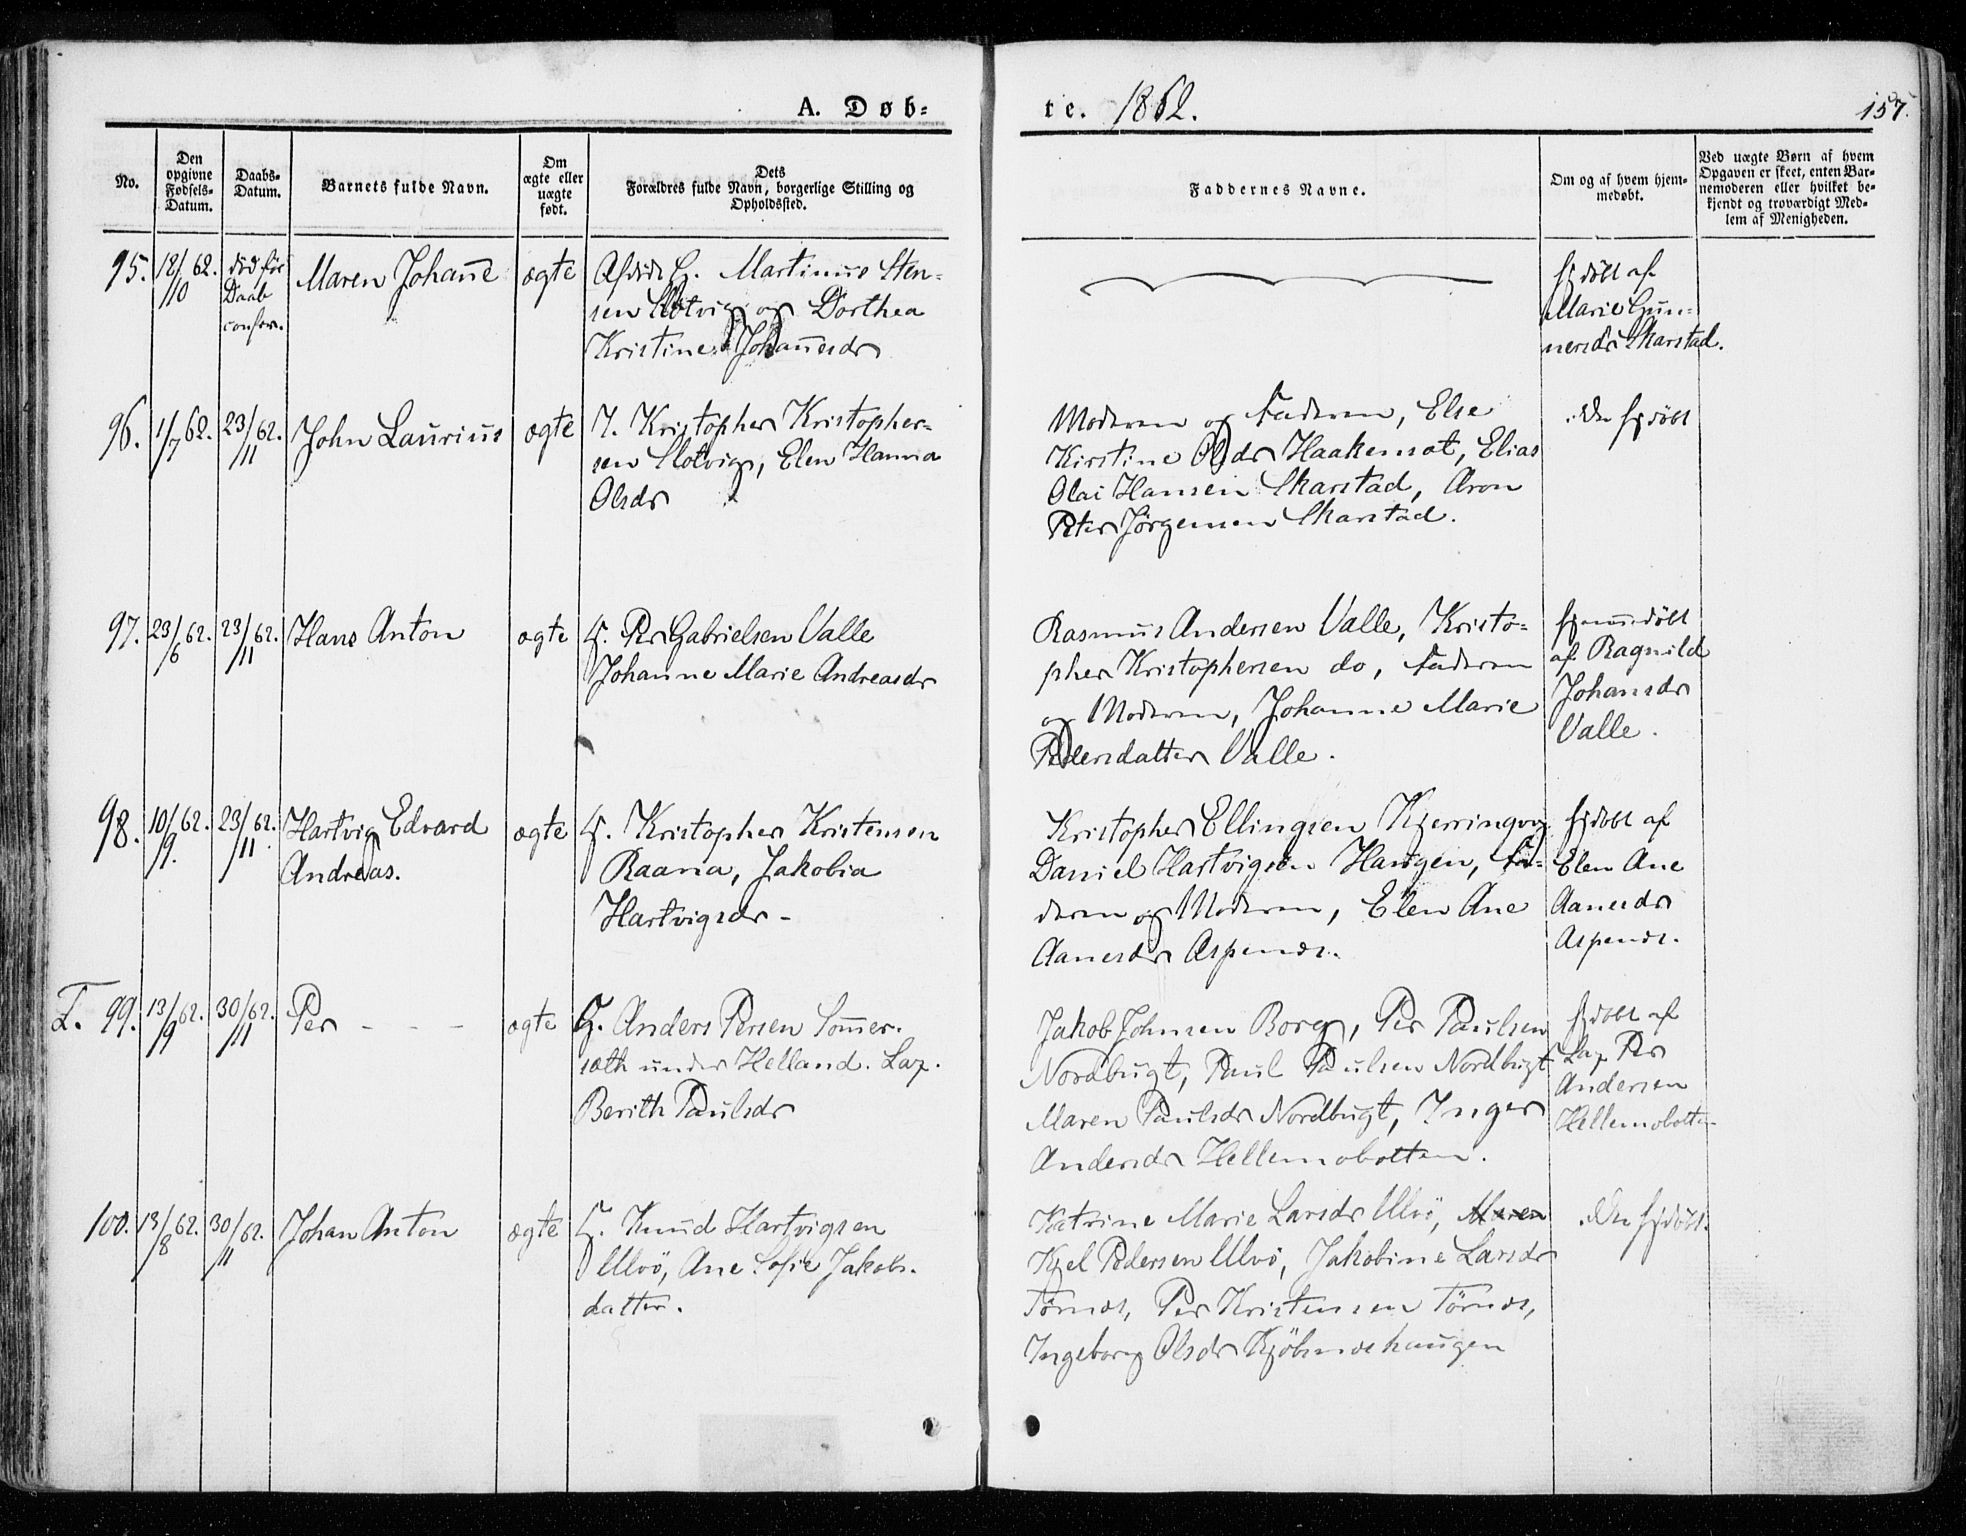 A. Døb-
te. 1862.
157.
No.
Den opgivne Fødsels-Datum.
Daabs-Datum.
Barnets fulde Navn.
Om ægte eller uægte født.
Dets Forældres fulde Navn, borgerlige Stilling og Opholdssted.
Faddernes Navne.
Om og af hvem hjem-medøbt.
Ved uægte Børn af hvem Opgaven er skeet, enten Bar-nemoderen eller hvilket be-kjendt og troværdigt Med-lem af Menigheden.
95. 18/10 62. død før Daab confer. Maren Johanne ægte
Afdøde G. Martinus Sten-
sen Slotvig og Dorthea
Kristine Johannesdr
hjdøbt af
Marie Gun-
nersdr Skarstad.
96. 1/7 62. 23/11 62. John Laurius ægte
I. Kristopher Kristopher-
sen Slotvig, Elen Hanna
Olsdr
Moderen og Faderen, Else
Kirstine Olsdr Haakensæt, Elias
Olai Hansen Skarstad, Aron
Peter Jørgensen Skarstad.
Ikke hjdøbt
97. 23/6 62. 23/11 62. Hans Anton ægte
G. Per Gabrielsen Valle
Johanne Marie Andreasdr
Rasmus Andersen Valle, Kristo-
pher Kristophersen do, Faderen
og Moderen, Johanne Marie
Pedersdatter Valle.
hjemmedøbt
af Ragnild
Johansdr
Valle.
98. 10/9 62. 23/11 62. Hartvig Edvard
Andreas. ægte
G. Kristopher Kristensen
Raana, Jakobia
Hartvigsdr -
Kristopher Ellingsen Kjerringvig
Daniel Hartvigsen Haugen, Fa-
deren og Moderen, Elen Ane
Aanesdr Aspenæs.
hjdøbt af
Elen Ane
Aanesdr
Aspenæs.
F. 99. 13/9 62. 30/11 62. Per - - - ægte
G. Anders Persen Sommer-
sæth under Helland. Lap.
Berith Paulsdr
Jakob Johnsen Borg, Per Paulsen
Nordbugt, Paul Paulsen Nordbugt
Maren Paulsdr Nordbugt, Inger
Andersdr Hellemobotten.
hjdøbt af
Lap Per
Andersen
Hellemobotten
100. 13/8 62. 30/11 62. Johan Anton ægte
G. Knud Hartvigsen
Ulvö, Ane Sofie Jakobs-
datter.
Katrine Marie Larsdr Ulvö, Maren
Kjel Pedersen Ulvö, Jakobine Larsdr
Tørnæs, Per Kristensen Törnæs,
Ingeborg Olsdr Kjöbsnæshaugen
Ikke hjdöbt.